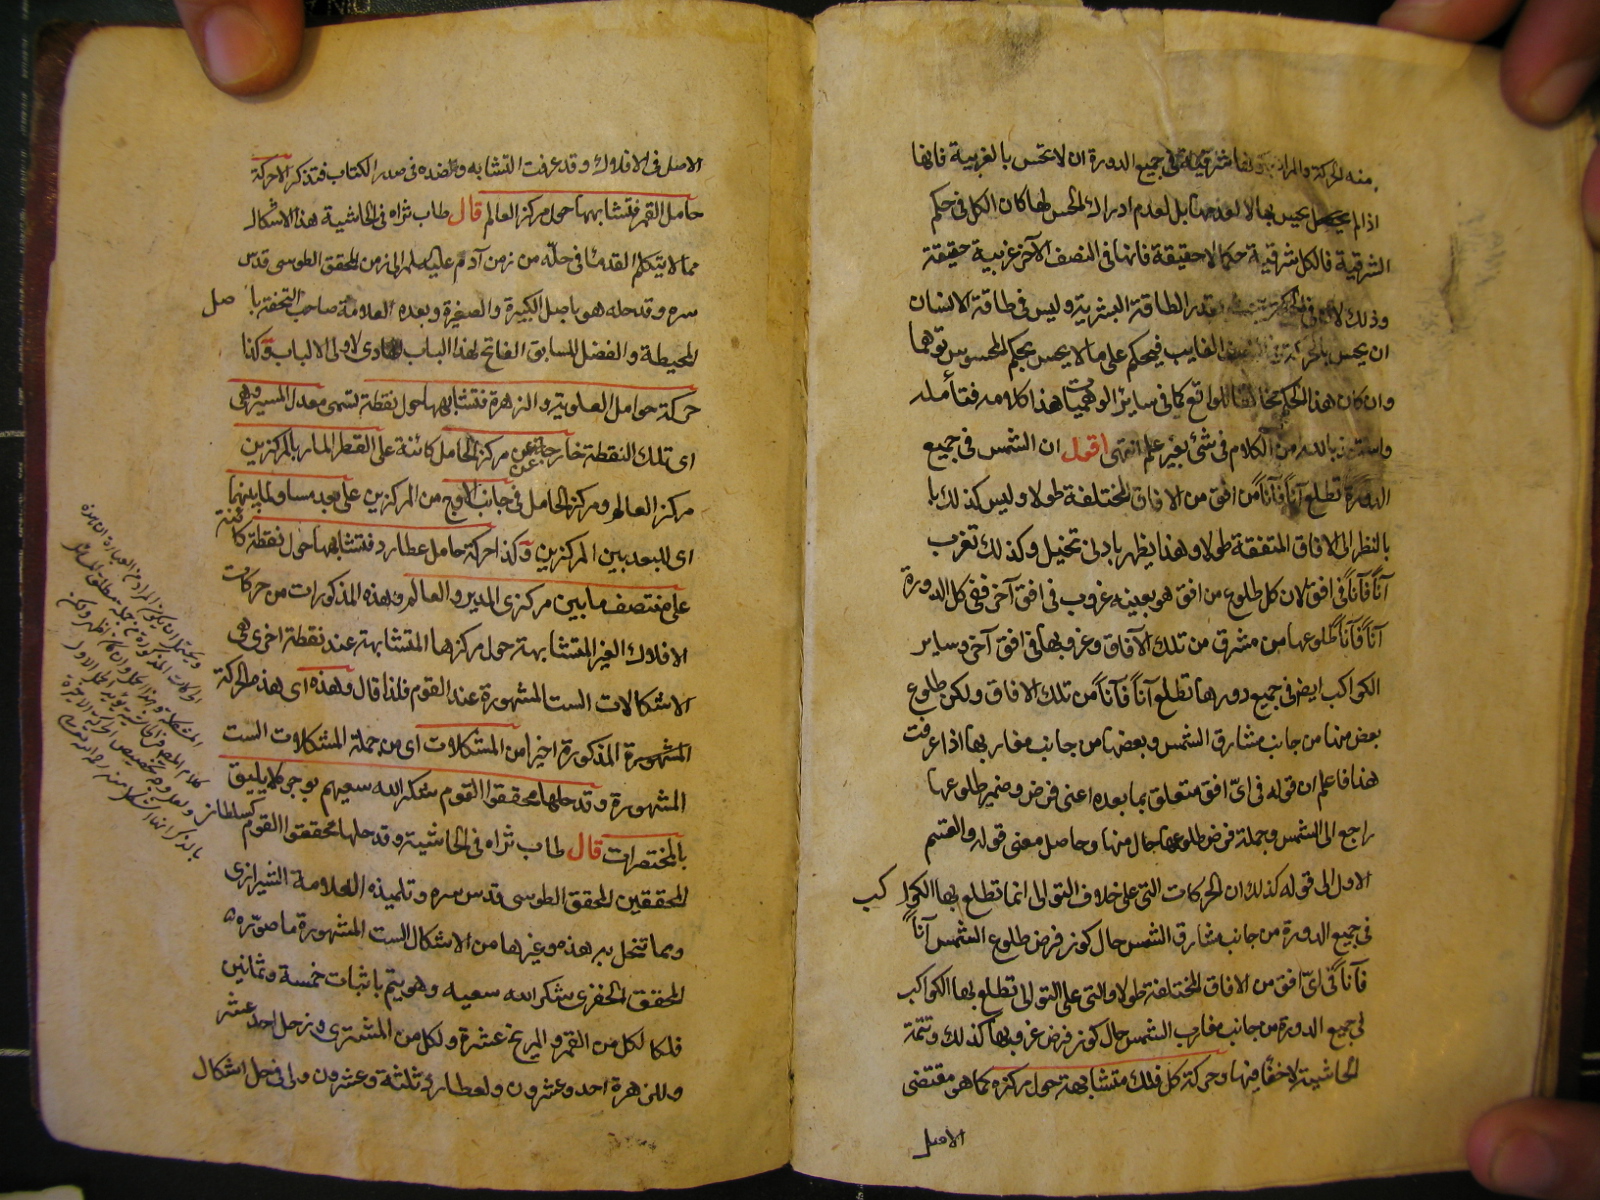 منه الحركة والمراد بكونها شرقية في جميع الدورة ان لا تحس بالغربية فانها
اذا لم يحس بها لا لعدمها بل لعدم ادراك الحس لها كان الكل في حكم
الشرقية فالكل شرقية حكما لا حقيقة فانها في النصف الآخر غربية حقيقة
وذلك لان بقدر الطاقة البشرية وليس في طاقة الانسان
ان يحس بالحركة في النصف الغايب فيحكم على ما لا يحس بحكم المحسوس توهما
وان كان هذا الحكم مخالفا للواقع كما في سائر الوهميات هذا كلامه فتأمله
واستعذ بالله من الكلام في شئ بغير علم انتهى اقول ان الشمس في جميع
الدورة تطلع آناً فآناً من افق من الآفاق المختلفة طولا وليس كذلك با
بالنظر الى الآفاق المتفقة طولا وهذا يظهر بادنى تخيل وكذلك تغرب
آناً فآناً في افق لان كل طلوع من افق هو بعينه غروب في افق آخر ففي كل الدورة
آناً فآناً طلوعها من مشرق من تلك الآفاق وغروبها في افق آخر وساير
الكواكب ايض في جميع دورها تطلع آناً فآناً من تلك الافاق ولكن طلوع
بعض منها من جانب مشارق الشمس وبعضها من جانب مغاربها اذا عرفت
هذا فاعلم ان قوله في اى افق متعلق بما بعده اعنى فرض وضمير طلوعها
راجع الى الشمس وجملة فرض طلوعها حال منها وحاصل معنى قوله والقسم
الاول الى قوله كذلك ان الحركات التى على خلاف التوالى انما تطلع بها الكواكب
في جميع الدورة من جانب مشارق الشمس حال كونه فرض طلوع الشمس آناً
فآناً في اىّ افق من الافاق المختلفة طولا والتى على التوالى تطلع بها الكواكب
في جميع الدورة من جانب مغارب الشمس حال كونه فرض غروبها كذلك وتتمة
الحاشية لا خفاء فيها وحركة كل فلك متشابهة حول مركزه كما هو مقتضى
الاصل
الاصل في الافلاك وقد عرفت التشابه وضده في صدر الكتاب فتذكر الا حركة
حامل القمر فتشابهها حول مركز العالم قال طاب ثراه في الحاشية هذا الاشكال
مما لا يتكلم القدماء في حله من زمن آدم عليه السلم الى زمن المحقق الطوسى قدس
سره وقد حله هو باصل الكبيرة والصغيرة وبعده العلامة صاحب التحفة باصل
المحيطة والفضل للسابق الفاتح لهذا الباب الهادى لاولى الالباب وكذا
حركة حوامل العلوية والزهرة فتشابهها حول نقطة تسمى معدل المسير وهى
اى تلك النقطة خارجة عن مركز الحامل كائنة على القطر المار بالمركزين
مركز العالم ومركز الحامل في جانب الاوج من المركزين على بعد مساو لما بينهما
اى للبعد بين المركزين وكذا حركة حامل عطارد فتشابهها حول نقطة كائنة
على منتصف ما بين مركزى المدير والعالم وهذه المذكورات من حركات
الافلاك الغير المتشابهة حول مركزها المتشابهة عند نقطة اخرى هى
الاشكالات الست المشهورة عند القوم فلذا قال وهذه اى هذه الحركة
المشهورة المذكورة اخيرا من المشكلات اى من جملة المشكلات الست
المشهورة وقد حلها محققوا القوم شكر الله سعيهم بوجوه لا يليق
بالمختصرات قال طاب ثراه في الحاشية وقد حلها محققوا القوم كسلطان
المحققين المحقق الطوسى قدس سره وتلميذه العلامة الشيرازى
ومما تنحل به هذه وغيرها من الاشكال الست المشهورة ما صوّره
المحقق الخفرى شكر الله سعيه وهو يتم باثبات خمسة وثمانين
فلكا لكل من القمر والمريخ عشرة ولكل من المشترى وزحل احد عشر
وللزهرة احد وعشرون ولعطارد ثلثة وعشرون ولى في حل اشكال